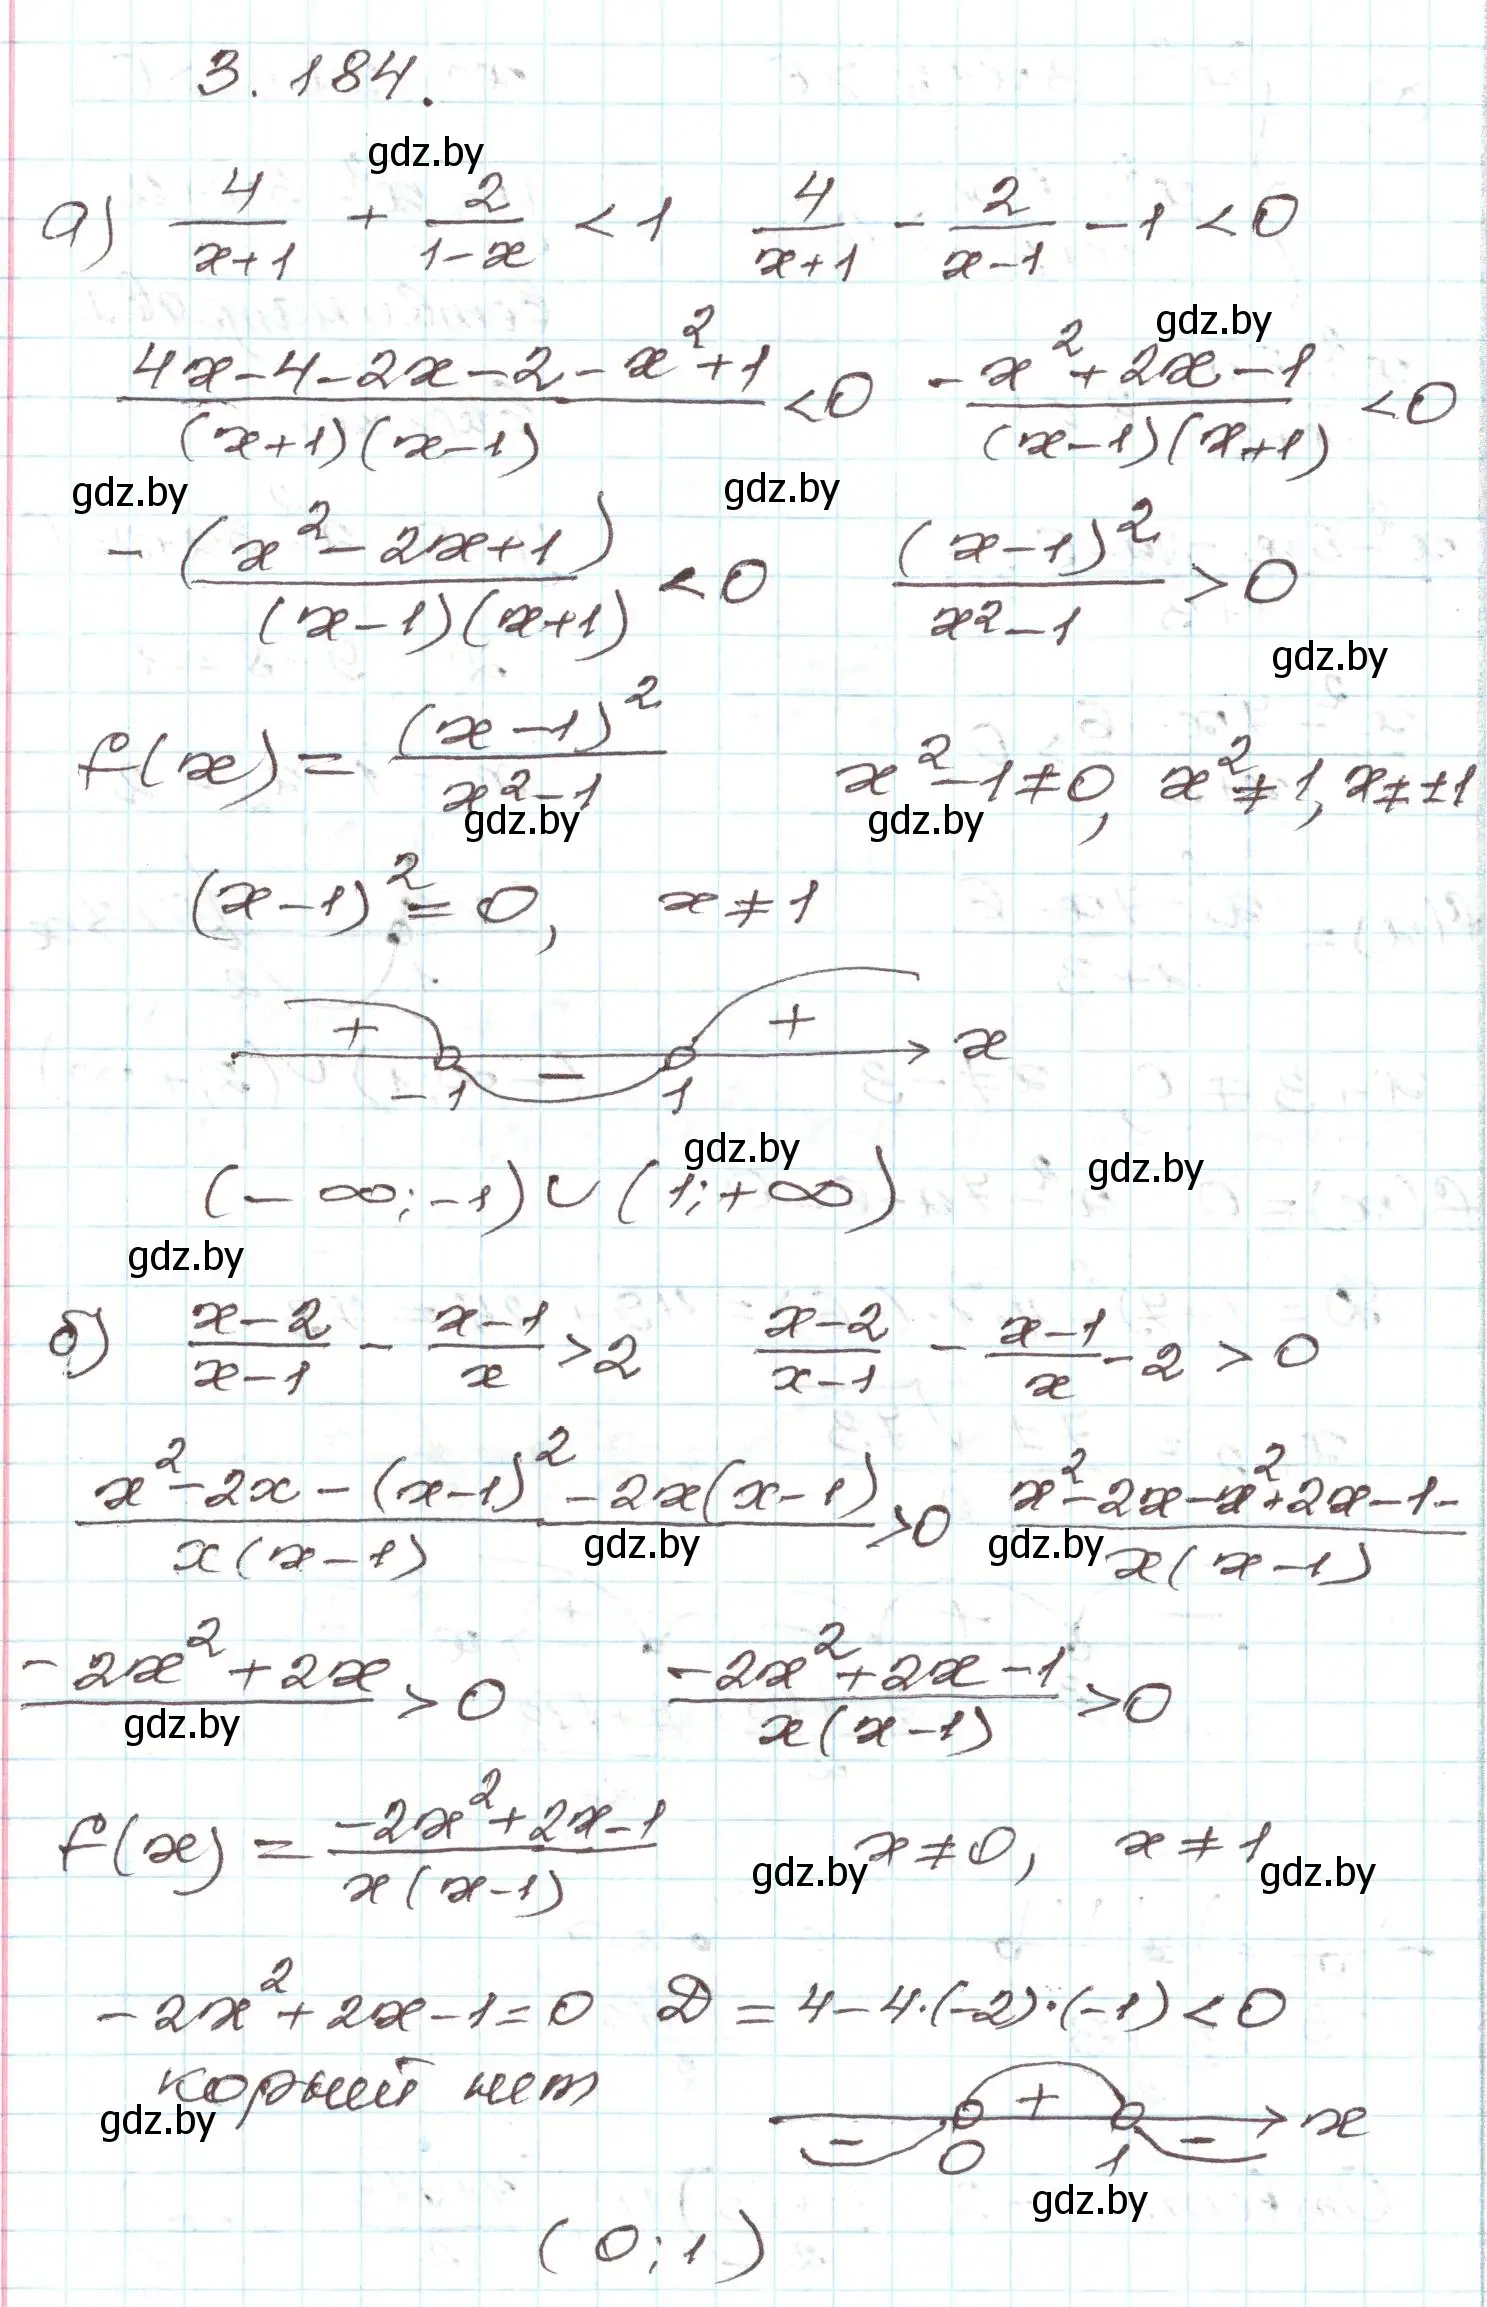 3.184.
gdz.by
а) 4/(x+1) + 2/(1-x) < 1   4/(x+1) - 2/(x-1) - 1 < 0
gdz.by
(4x-4-2x-2-x²+1)/((x+1)(x-1)) < 0   (-x²+2x-1)/((x-1)(x+1)) < 0
gdz.by gdz.by
-(x²-2x+1)/((x-1)(x+1)) < 0   (x-1)²/(x²-1) > 0
gdz.by
f(x) = (x-1)²/(x²-1)   x²-1≠0, x²≠1, x≠±1
gdz.by gdz.by
(x-1)²=0, x≠1
+ - + x
-1 1
gdz.by gdz.by
(-∞;-1)∪(1;+∞)
gdz.by
б) (x-2)/(x-1) - (x-1)/x > 2   (x-2)/(x-1) - (x-1)/x - 2 > 0
(x²-2x-(x-1)²-2x(x-1))/(x(x-1)) > 0   (x²-2x-x²+2x-1-)/(x(x-1))
gdz.by gdz.by
-2x²+2x > 0   (-2x²+2x-1)/(x(x-1)) > 0
gdz.by
f(x) = (-2x²+2x-1)/(x(x-1))   x≠0, x≠1
gdz.by gdz.by
-2x²+2x-1=0   D=4-4·(-2)·(-1)<0
корней нет
gdz.by
- + - x
0 1
gdz.by
(0;1)